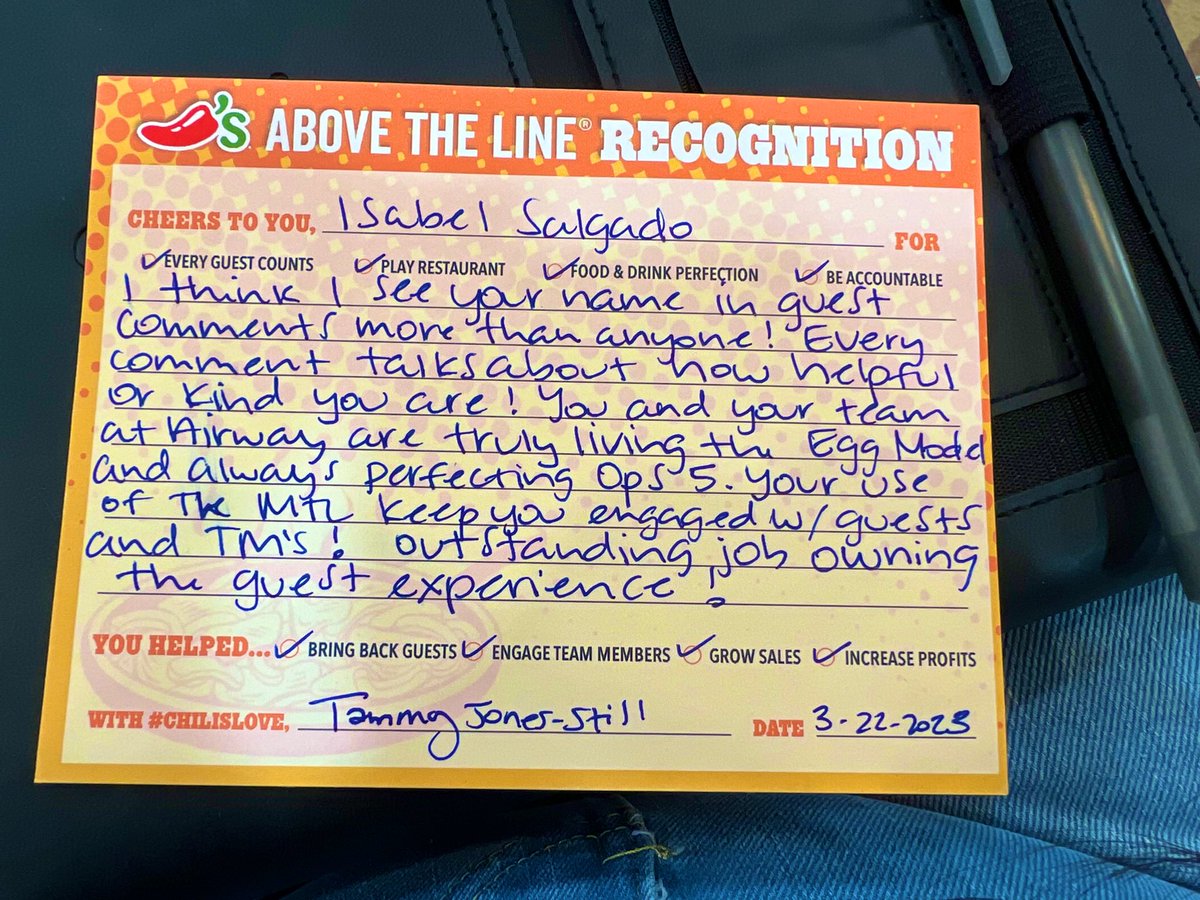 's ABOVE THE LINE® RECOGNITION
CHEERS TO YOU, Isabel Salgado FOR
EVERY GUEST COUNTS PLAY RESTAURANT FOOD & DRINK PERFECTION BE ACCOUNTABLE
I think I see your name in guest
comments more than anyone! Every
comment talks about how helpful
or kind you are! You and your team
at Airway are truly living the Egg Model
and always perfecting Ops 5. Your use
of The MTL keep you engaged w/ guests
and TM's! outstanding job owning
the guest experience!
YOU HELPED... BRING BACK GUESTS ENGAGE TEAM MEMBERS GROW SALES INCREASE PROFITS
WITH #CHILISLOVE, Tammy Jones-Still DATE 3-22-2023